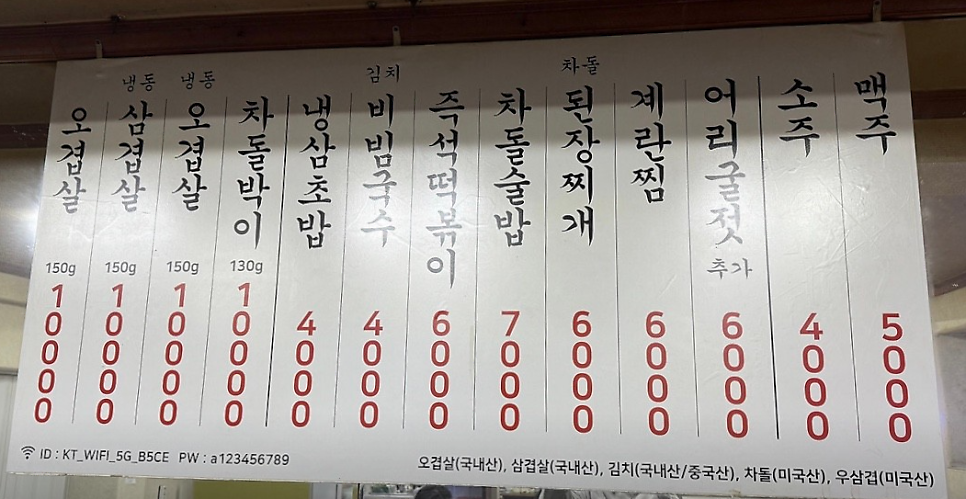 오겹살 150g 10000
냉동 삼겹살 150g 10000
냉동 오겹살 150g 10000
차돌박이 130g 10000
냉삼초밥 4000
김치 비빔국수 4000
즉석떡볶이 6000
차돌술밥 7000
차돌 된장찌개 6000
계란찜 6000
어리굴젓 추가 6000
소주 4000
맥주 5000
ID : KT_WIFI_5G_B5CE PW : a123456789
오겹살(국내산), 삼겹살(국내산), 김치(국내산/중국산), 차돌(미국산), 우삼겹(미국산)